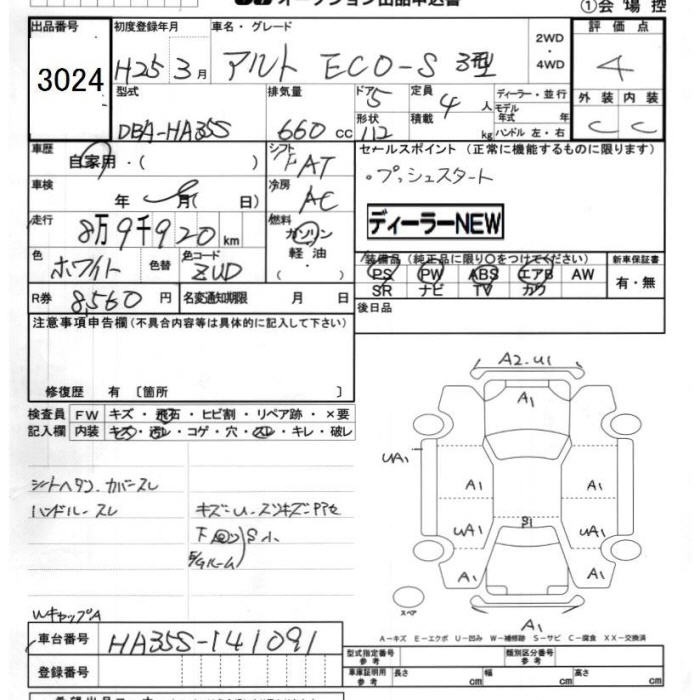 オークション出品申込書
①会場控
出品番号
3024
初度登録年月
H25 3月
車名・グレード
アルト ECO-S 3型
2WD
・
4WD
評価点
4
型式
DBA-HA35S
排気量
660 cc
ドア 5
形状 112
定員 4 人
積載 kg
ディーラー・並行
モデル年式 年
ハンドル 左・右
外装 内装
C C
車歴
自家用・( )
シフト
FAT
セールスポイント(正常に機能するものに限ります)
。プッシュスタート
ディーラーNEW
車検
年 月( 日)
冷房
AC
走行
8万9千920km
燃料
ガソリン
軽油
・
( )
色
ホワイト
色替
色コード
ZUD
装備品(純正品に限り○をつけてください)
PS PW ABS エアB AW
SR ナビ TV カワ
新車保証書
有・無
R券 8,560円
名変通知期限 月 日
後日品
注意事項申告欄(不具合内容等は具体的に記入して下さい)
修復歴 有〔箇所 〕
検査員記入欄
FW キズ・飛石・ヒビ割・リペア跡・×要
内装 キズ・汚レ・コゲ・穴・スレ・キレ・破レ
シートヘタン、カバースレ
ハンドルースレ
キズ
S小
WキャップA
A2.U1
A1
UA1
A1
A1
S1
UA1
UA1
A1
A1
A1
スペア
A−キズ E−エクボ U−凹み W−補修跡 S−サビ C−腐食 XX−交換済
車台番号
HA35S-141091
登録番号
型式指定番号 参考
類別区分番号 参考
車庫証明用 参考
長さ cm
幅 cm
高さ cm